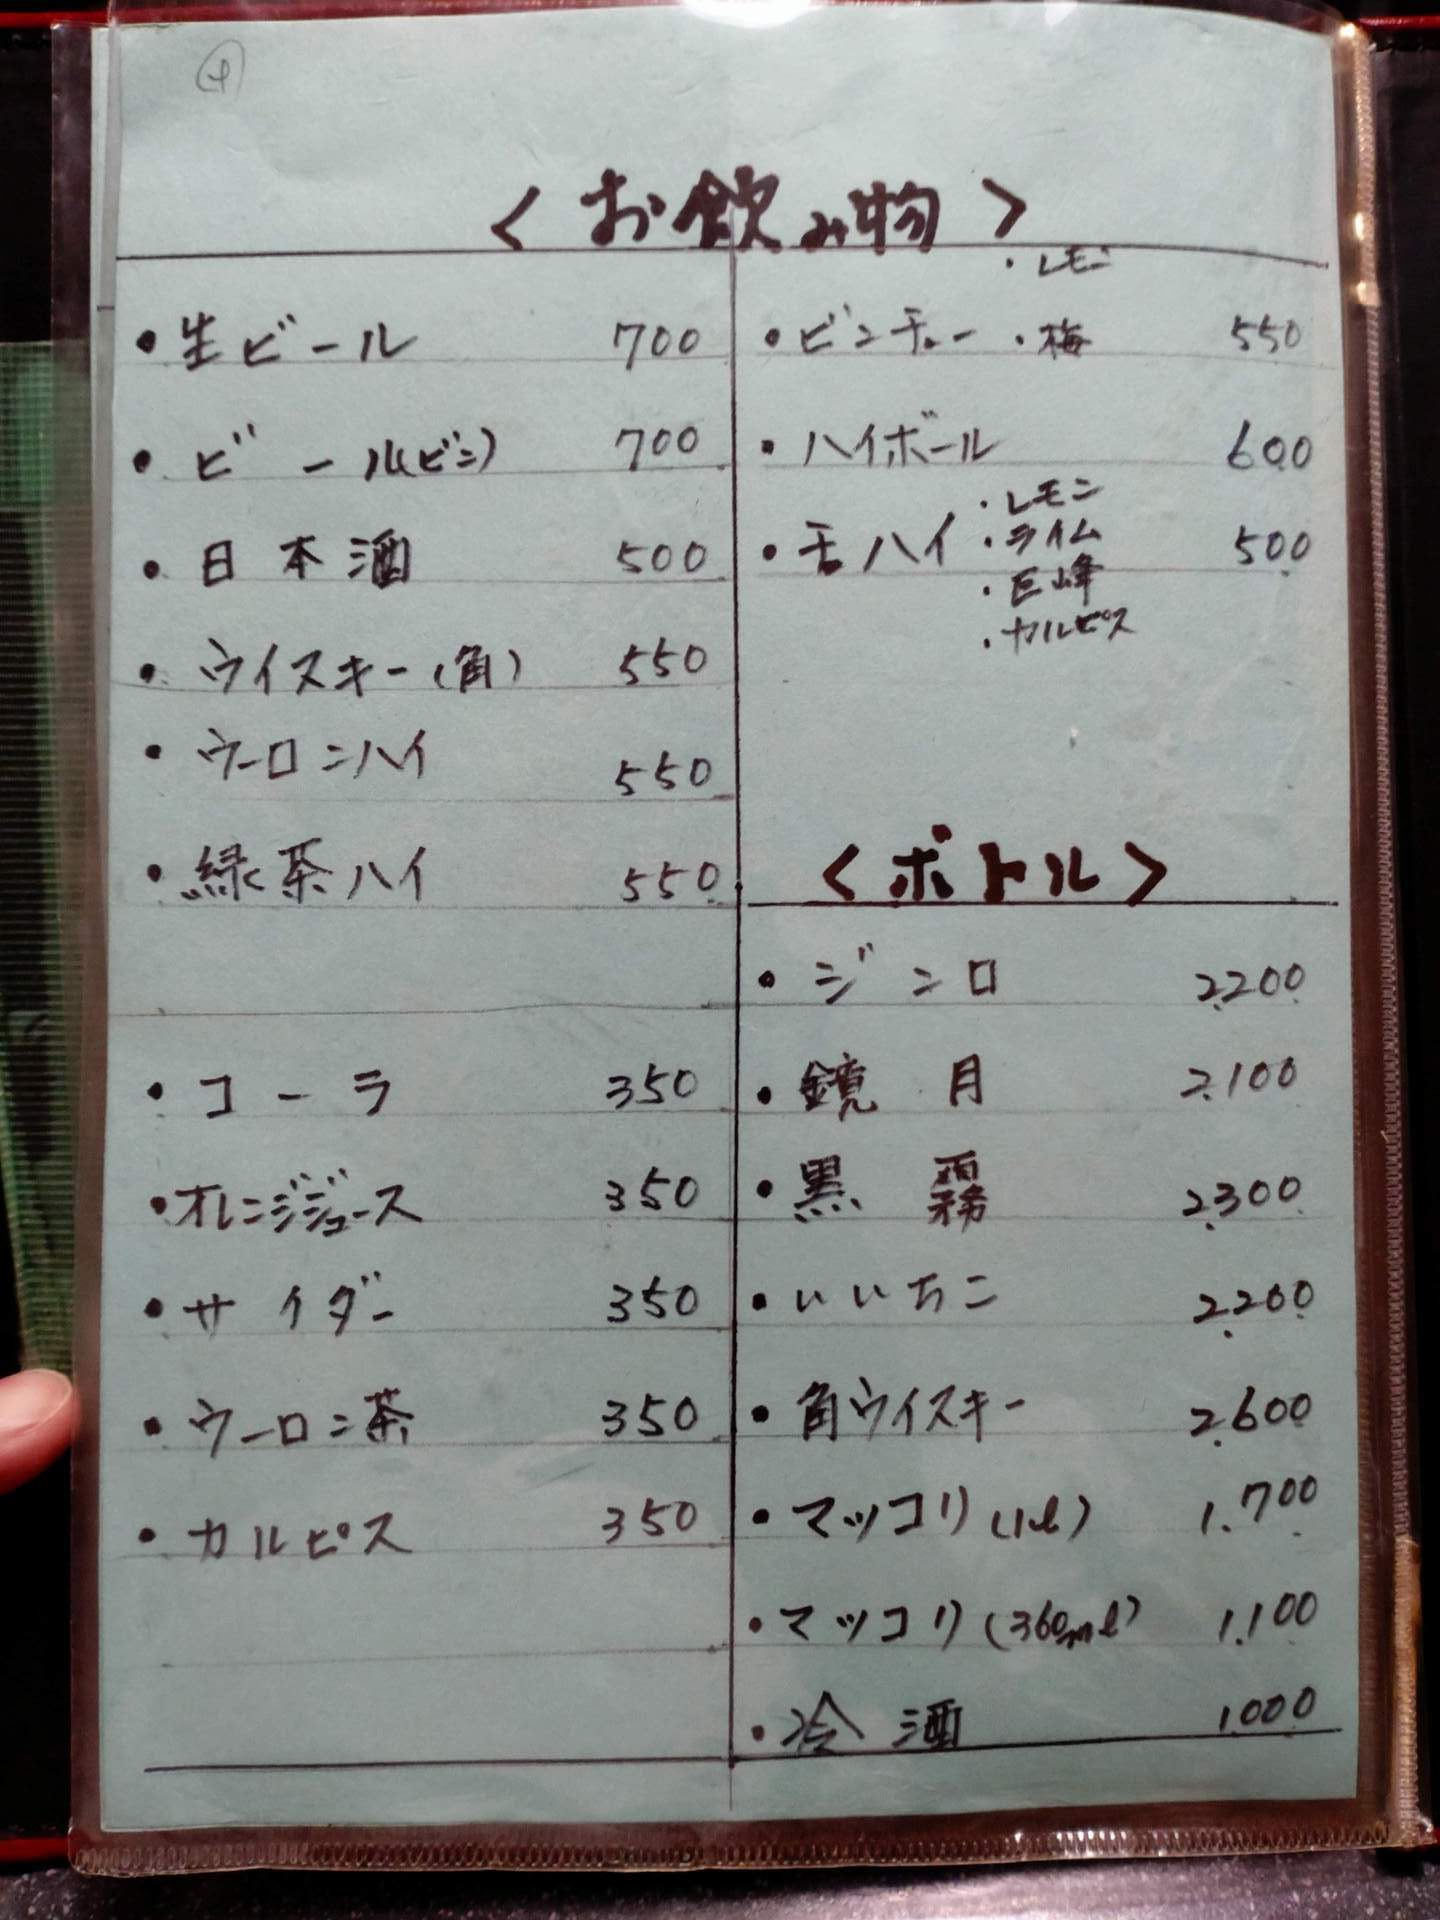 ④
＜お飲み物＞
・生ビール 700
・ビール(ビン) 700
・日本酒 500
・ウイスキー(角) 550
・ウーロンハイ 550
・緑茶ハイ 550
・コーラ 350
・オレンジジュース 350
・サイダー 350
・ウーロン茶 350
・カルピス 350
・レモン
・ビンチュー ・梅 550
・ハイボール 600
・レモン
・チュウハイ ・ライム 500
・巨峰
・カルピス
＜ボトル＞
・ジンロ 2.200
・鏡月 2.100
・黒霧 2.300
・いいちこ 2.200
・角ウイスキー 2.600
・マッコリ(1ℓ) 1.700
・マッコリ(360mℓ) 1.100
・冷酒 1000